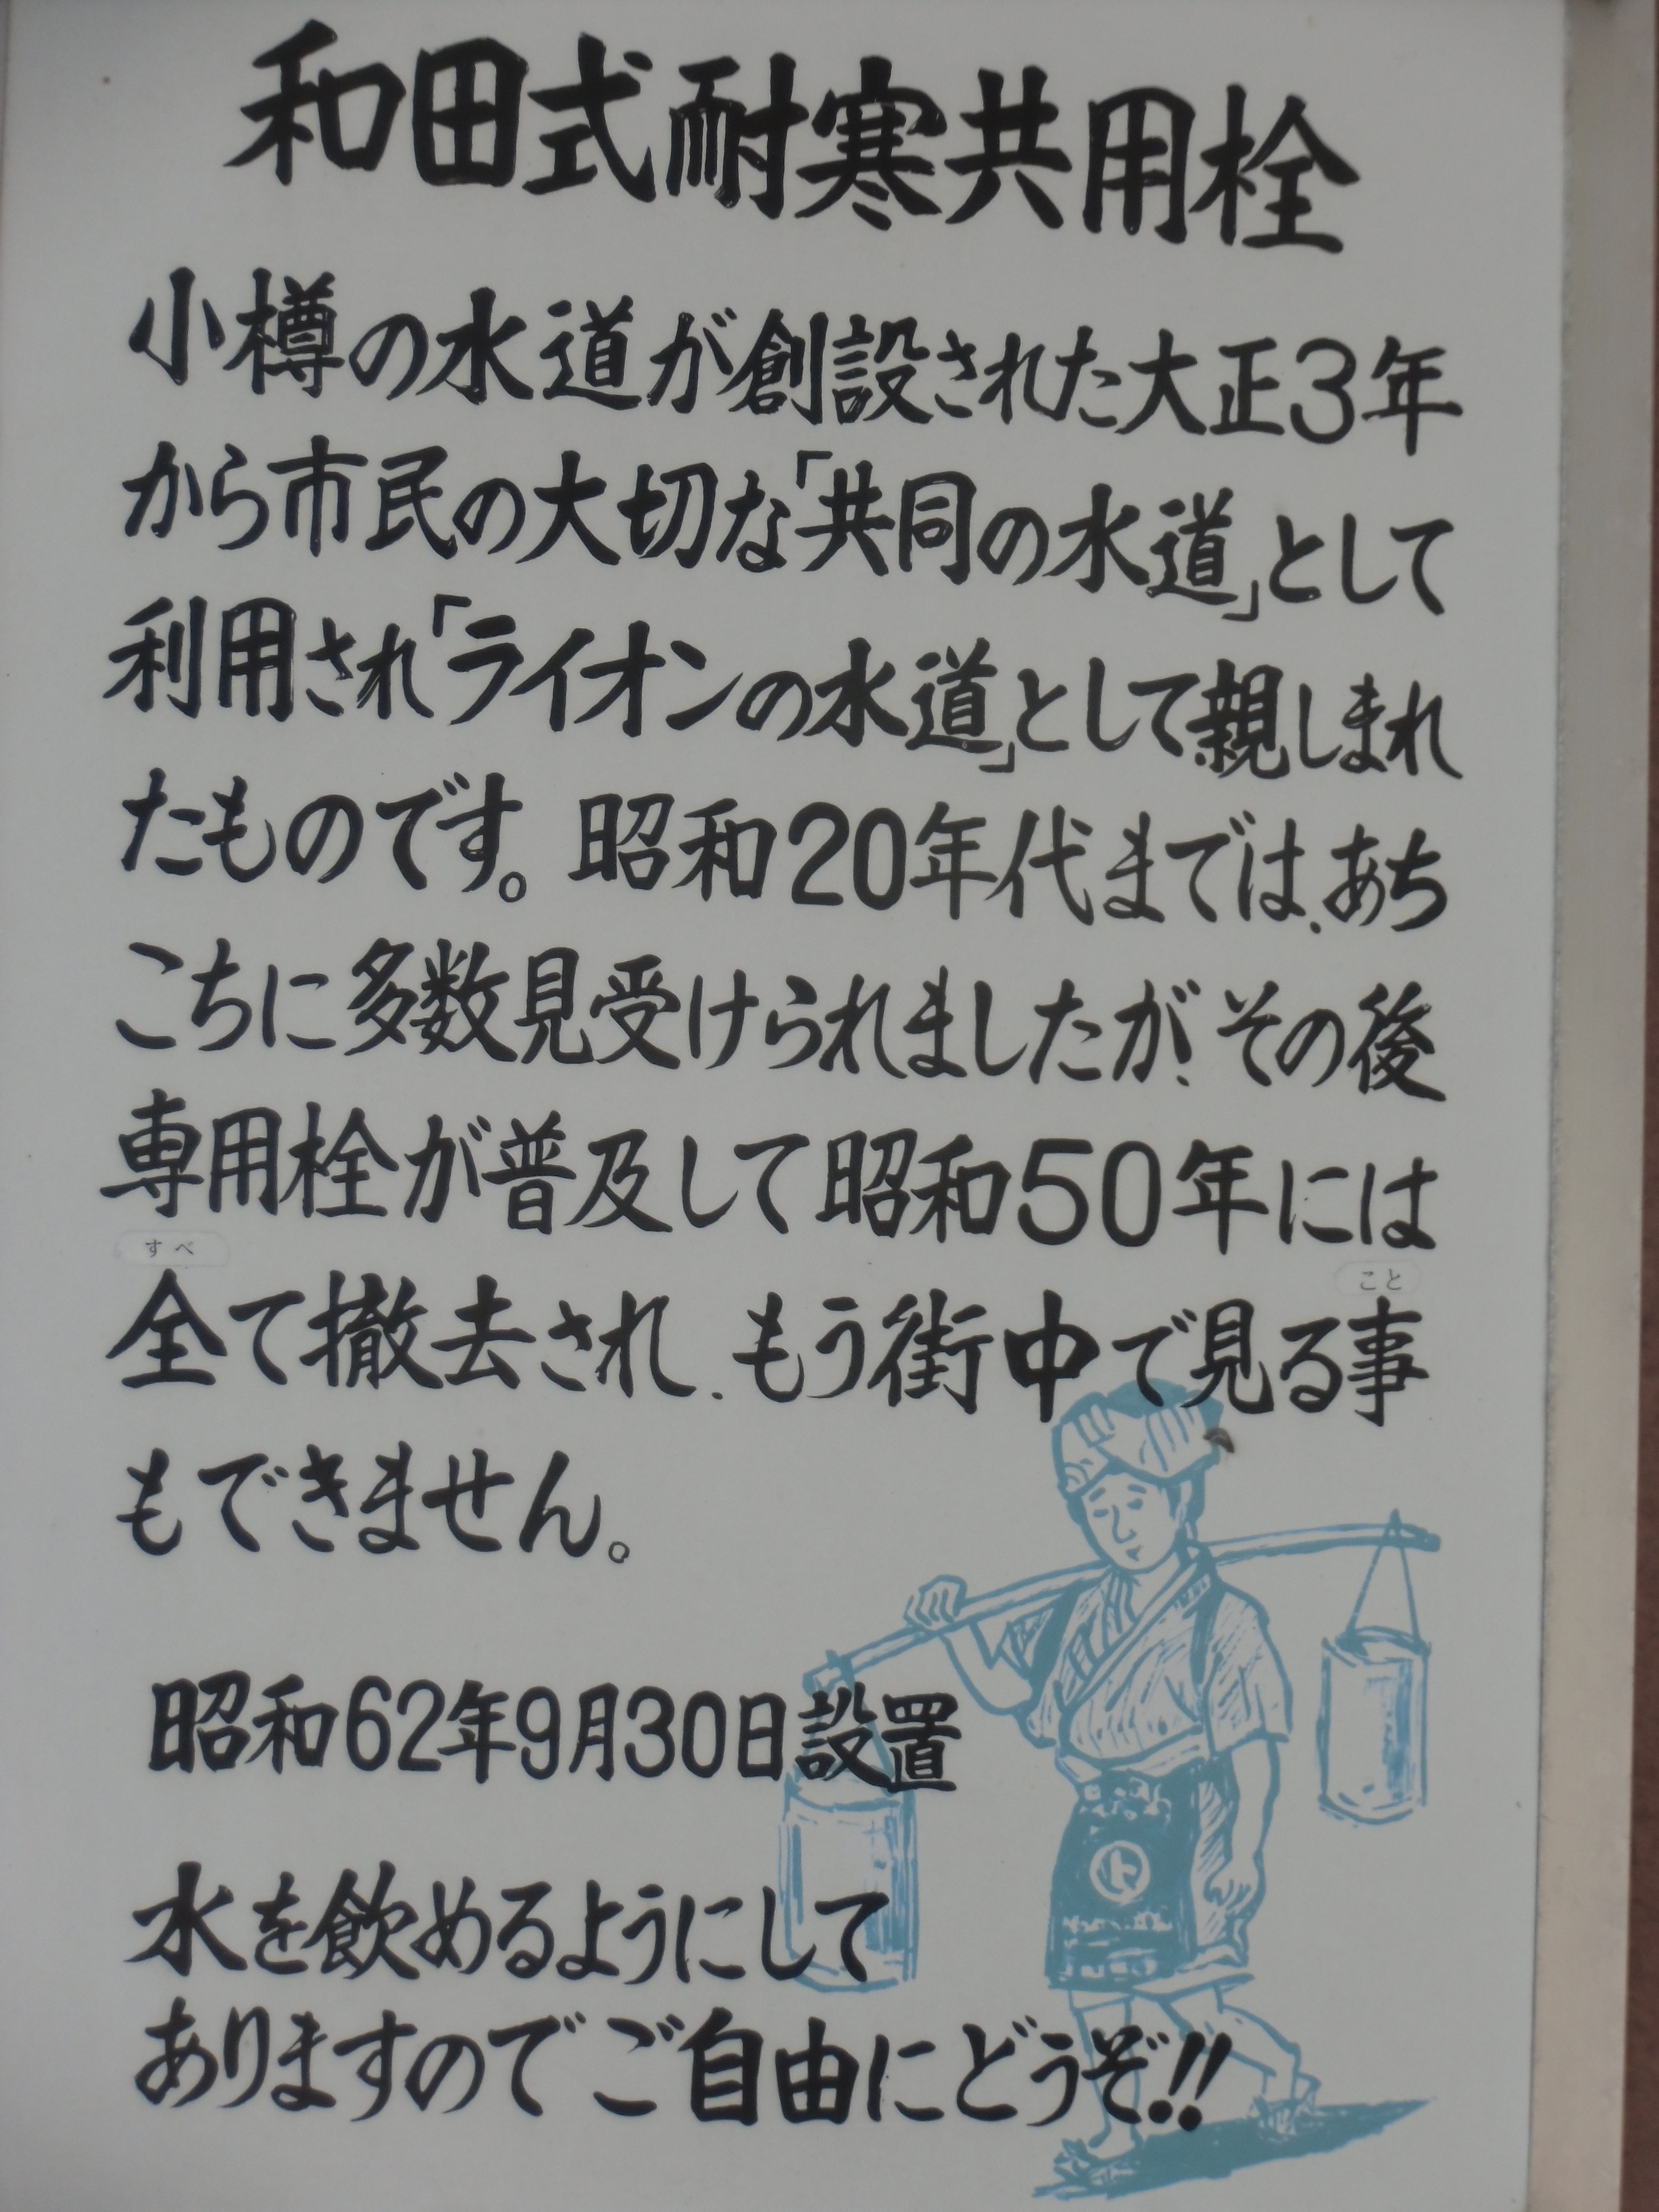 和田式耐寒共用栓
小樽の水道が創設された大正3年
から市民の大切な「共同の水道」として
利用され「ライオンの水道」として親しまれ
たものです。昭和20年代までは、あち
こちに多数見受けられましたが、その後
専用栓が普及して昭和50年には
すべ
こと
全て撤去され、もう街中で見る事
もできません。
昭和62年9月30日設置
水を飲めるようにして
ありますのでご自由にどうぞ!!
ト